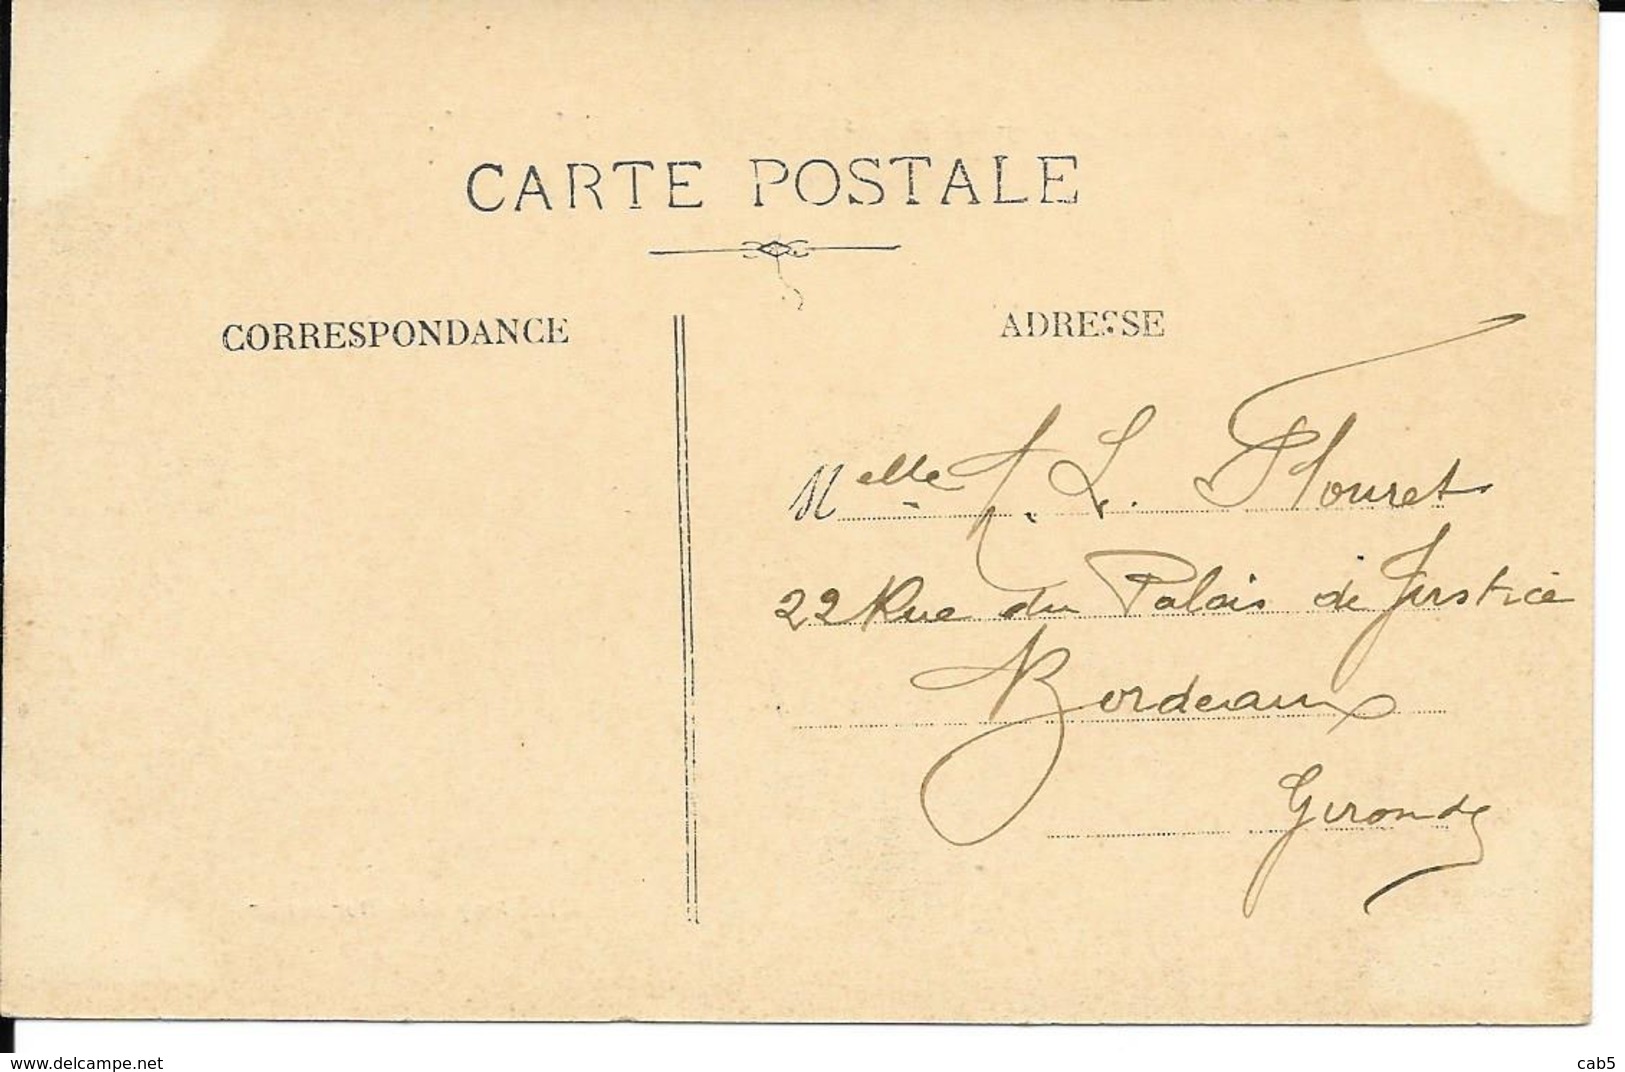 CARTE POSTALE
CORRESPONDANCE
ADRESSE
Melle L.
22 Rue du Palais de Justice
Bordeaux
Gironde
www.delcampe.net
cab5